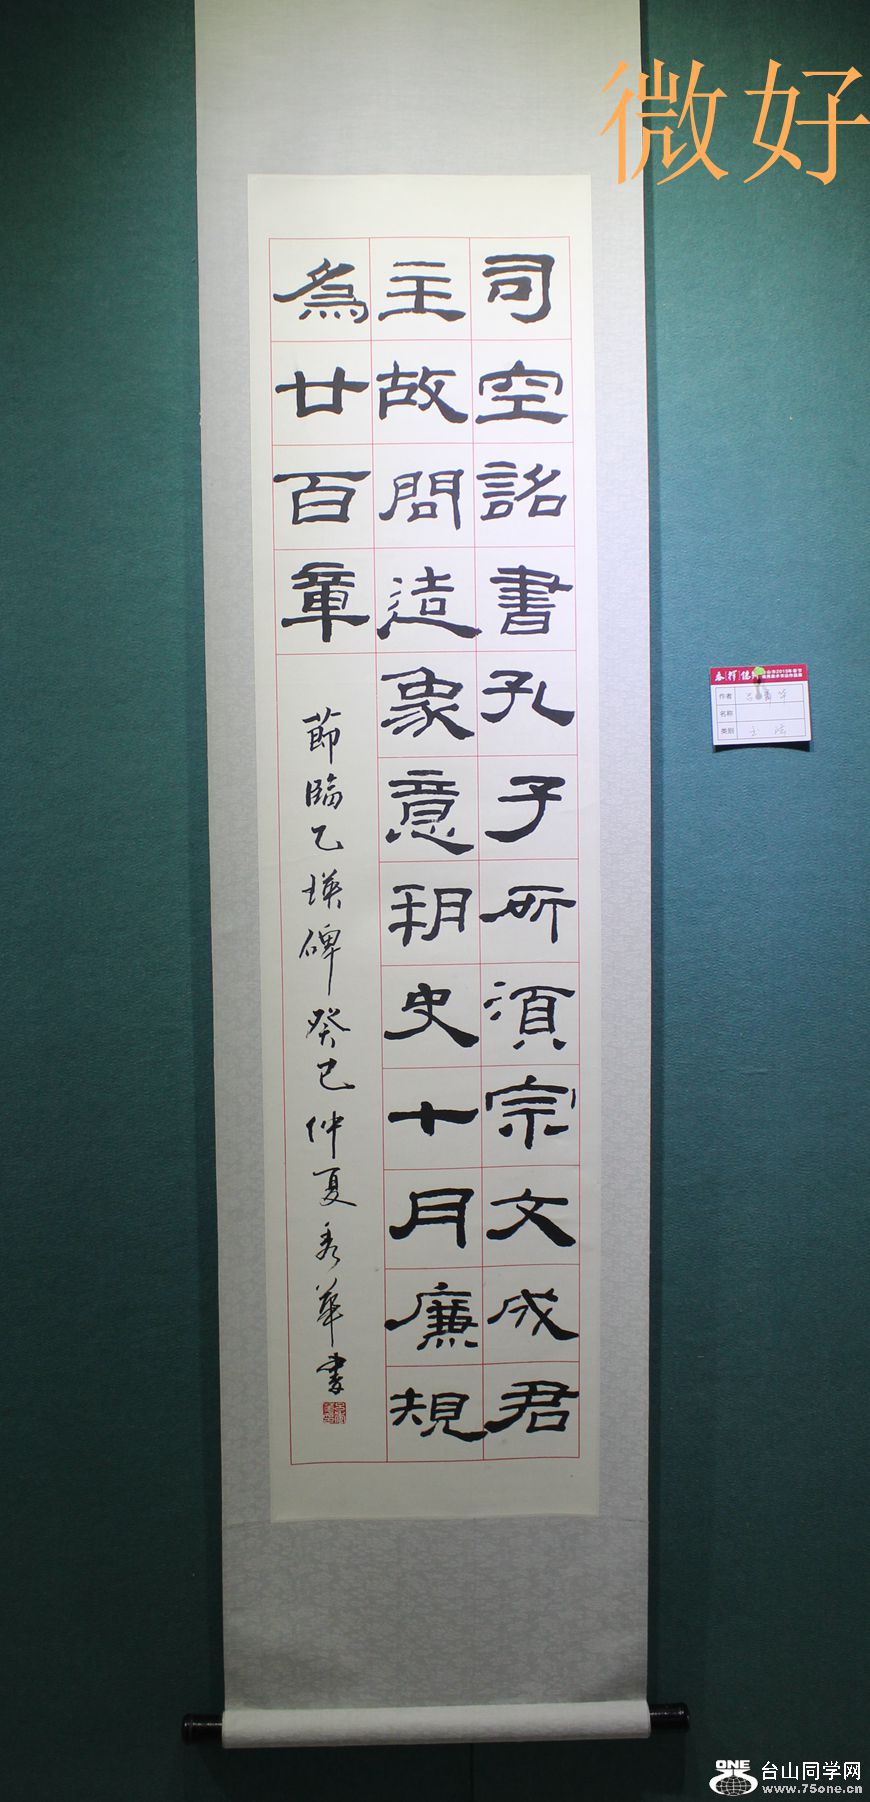 微好
司空詔書孔子所須宗文成君
主故問造象意朔史十月廉規
為廿百章
節臨乙瑛碑癸巳仲夏秀華書
作者
名称
类别
ONE
台山同学网
www.75one.cn